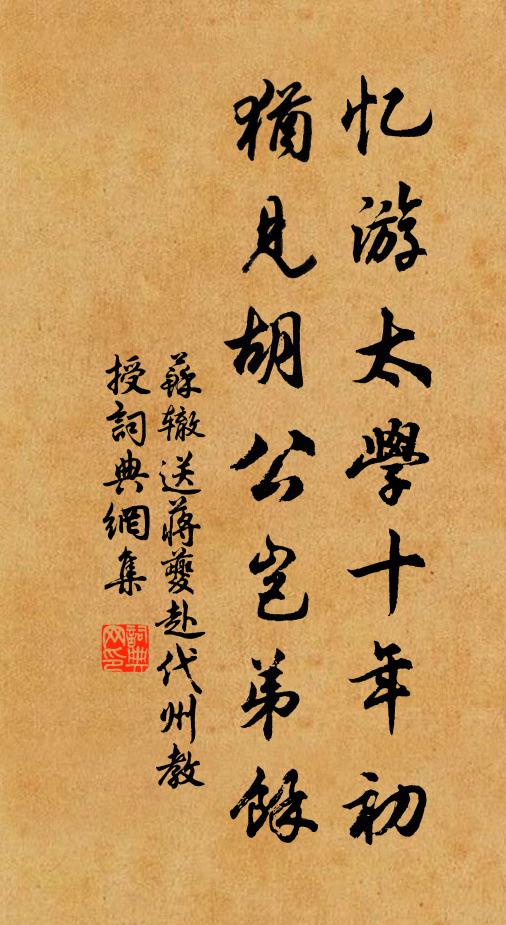 忆游太學十年初
猶見胡公岂弟餘
蘇辙送蔣夔赴代州教
授詞典網集
詞典网印